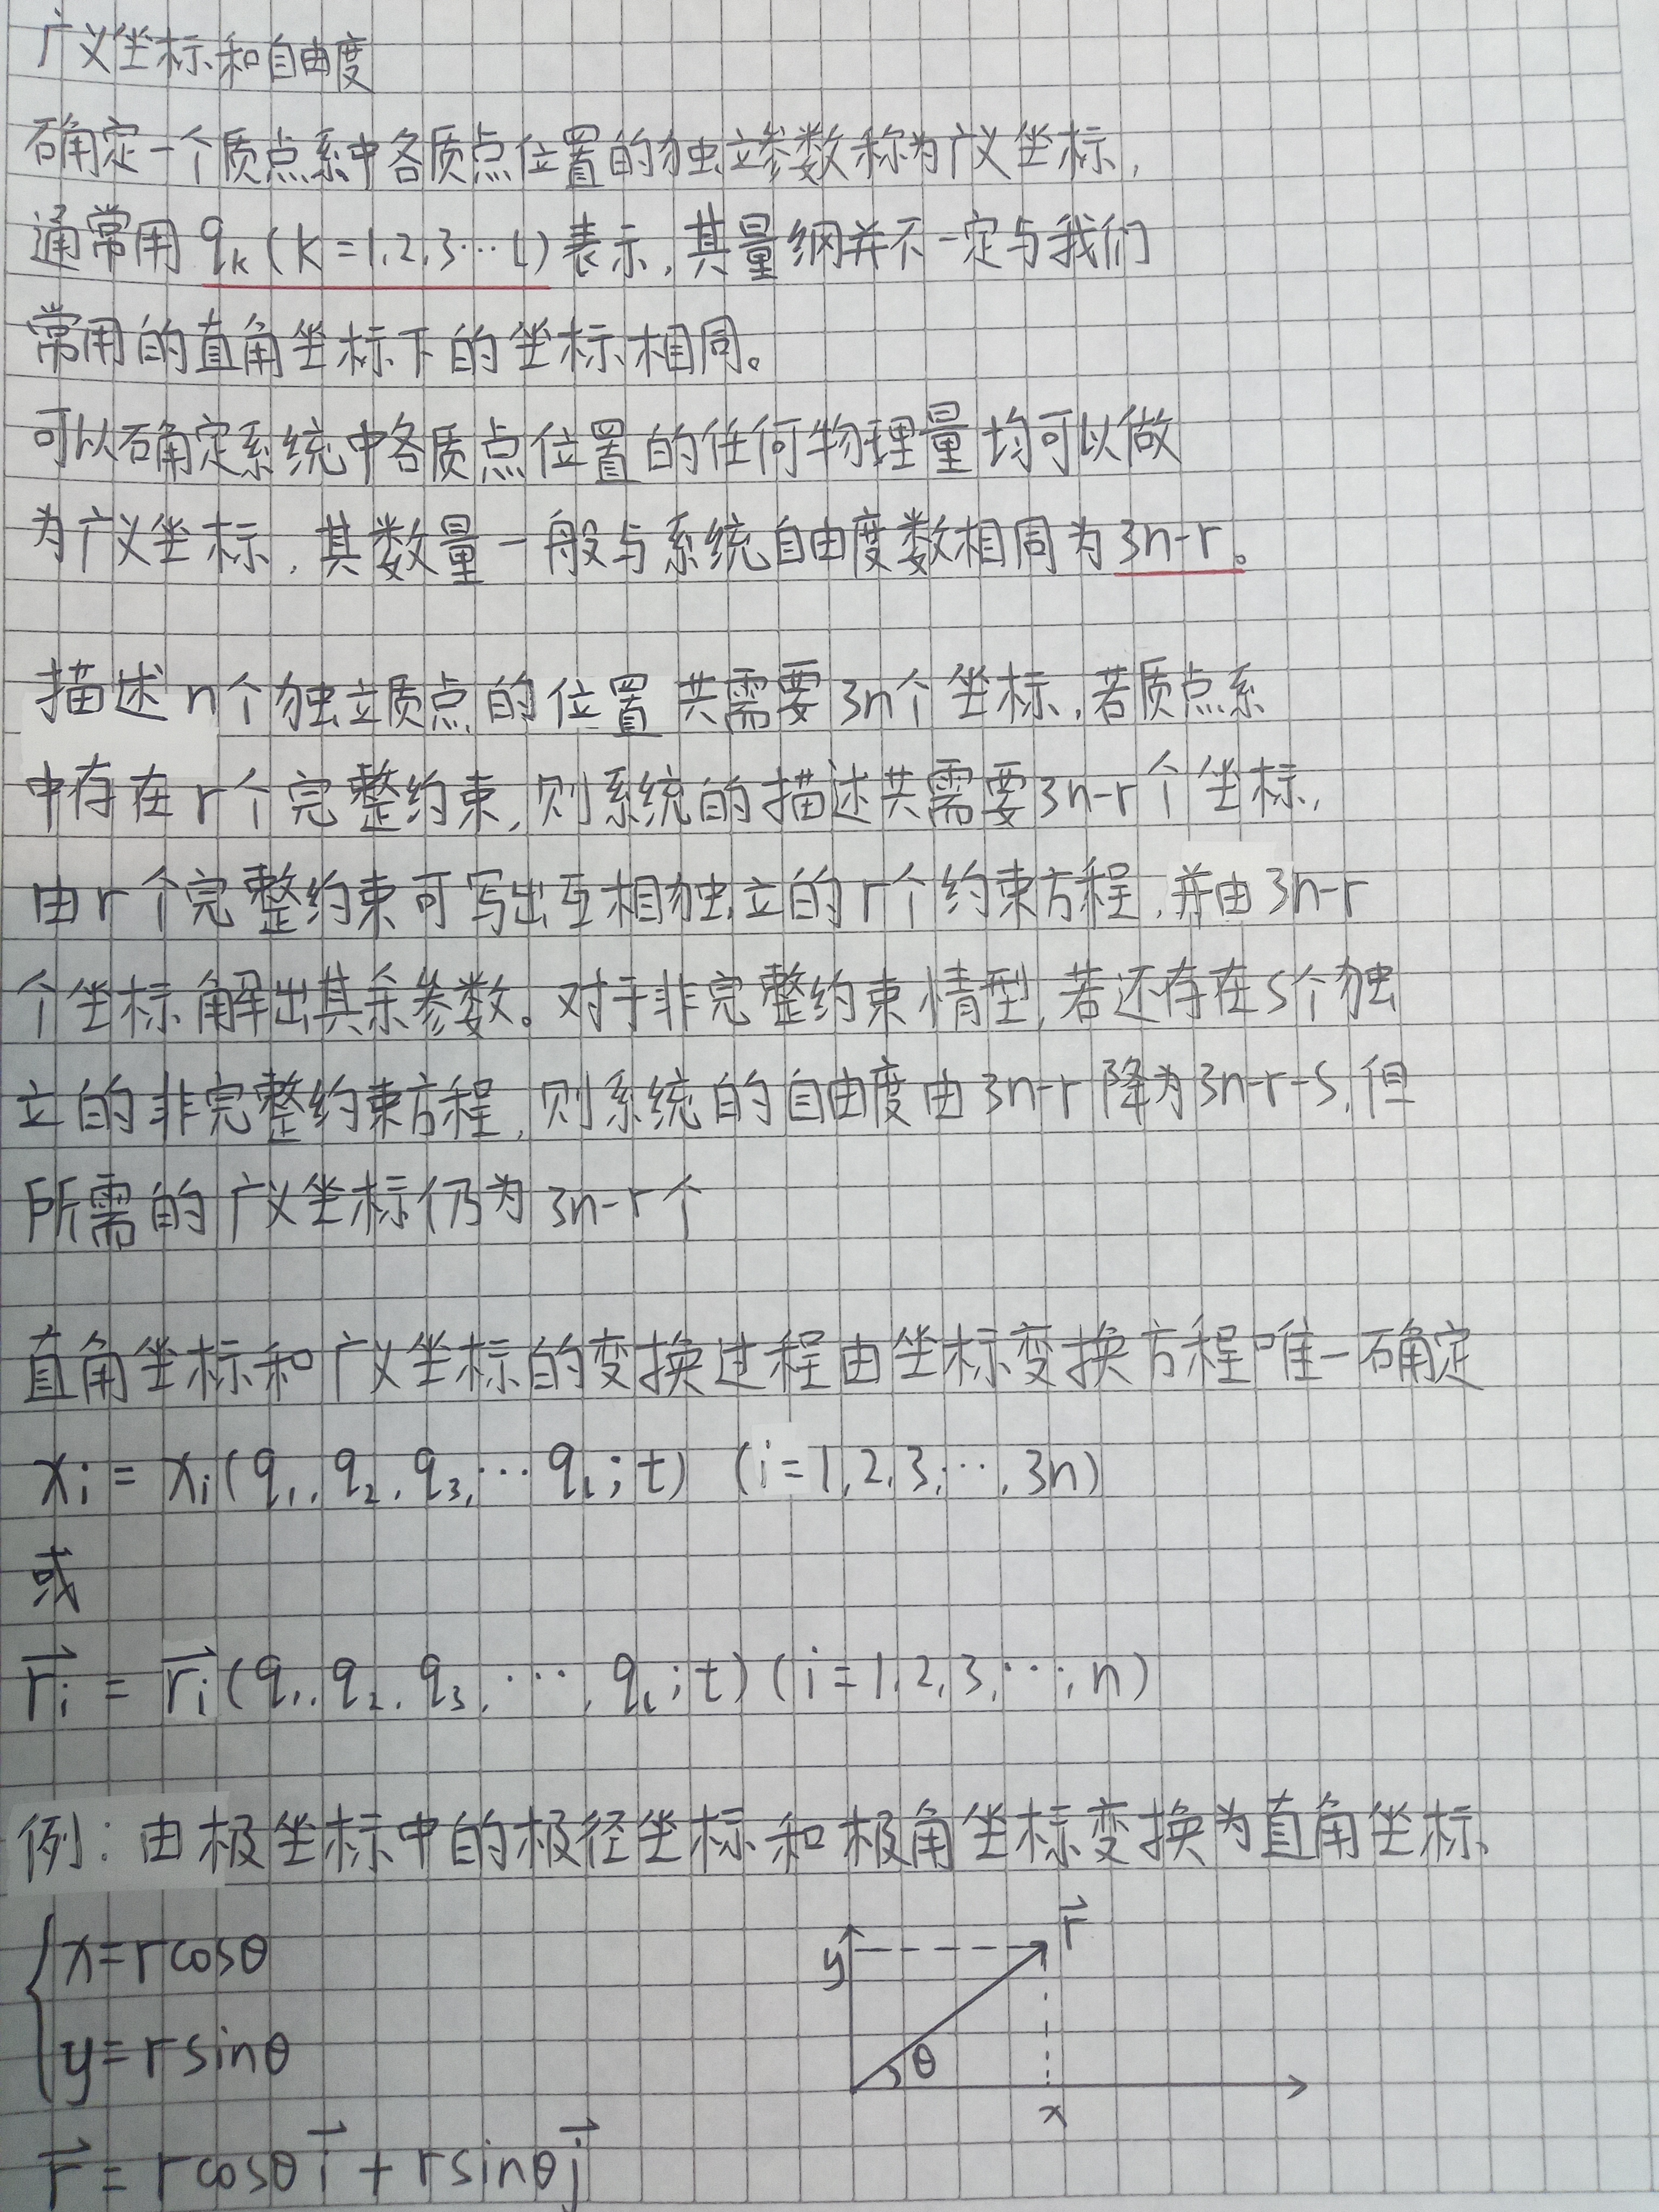 广义坐标和自由度
确定一个质点系中各质点位置的独立参数称为广义坐标,
通常用 qₖ (k=1,2,3…l) 表示,其量纲并不一定与我们
常用的直角坐标下的坐标相同。
可以确定系统中各质点位置的任何物理量均可以做
为广义坐标,其数量一般与系统自由度数相同为3n-r。
描述n个独立质点的位置共需要3n个坐标,若质点系
中存在r个完整约束,则系统的描述共需要3n-r个坐标,
由r个完整约束可写出互相独立的r个约束方程,并由3n-r
个坐标解出其余参数。对于非完整约束情型,若还存在s个独
立的非完整约束方程,则系统的自由度由3n-r降为3n-r-s,但
所需的广义坐标仍为3n-r个
直角坐标和广义坐标的变换过程由坐标变换方程唯一确定
xᵢ = xᵢ(q₁,q₂,q₃,…qₗ;t) (i=1,2,3,…,3n)
或
r⃗ᵢ = r⃗ᵢ(q₁,q₂,q₃,…,qₗ;t)(i=1,2,3,…,n)
例:由极坐标中的极径坐标和极角坐标变换为直角坐标
x=rcosθ
y=rsinθ
r⃗ = rcosθ i⃗ + rsinθ j⃗
r⃗
y
θ
x